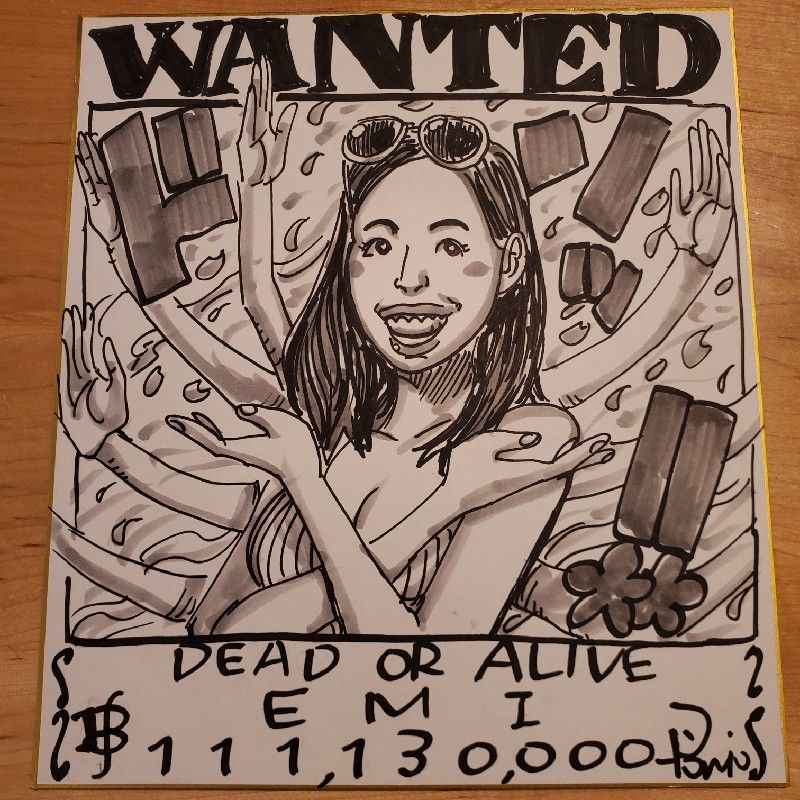 WANTED
ドン!!
DEAD OR ALIVE
EMI
฿111,130,000